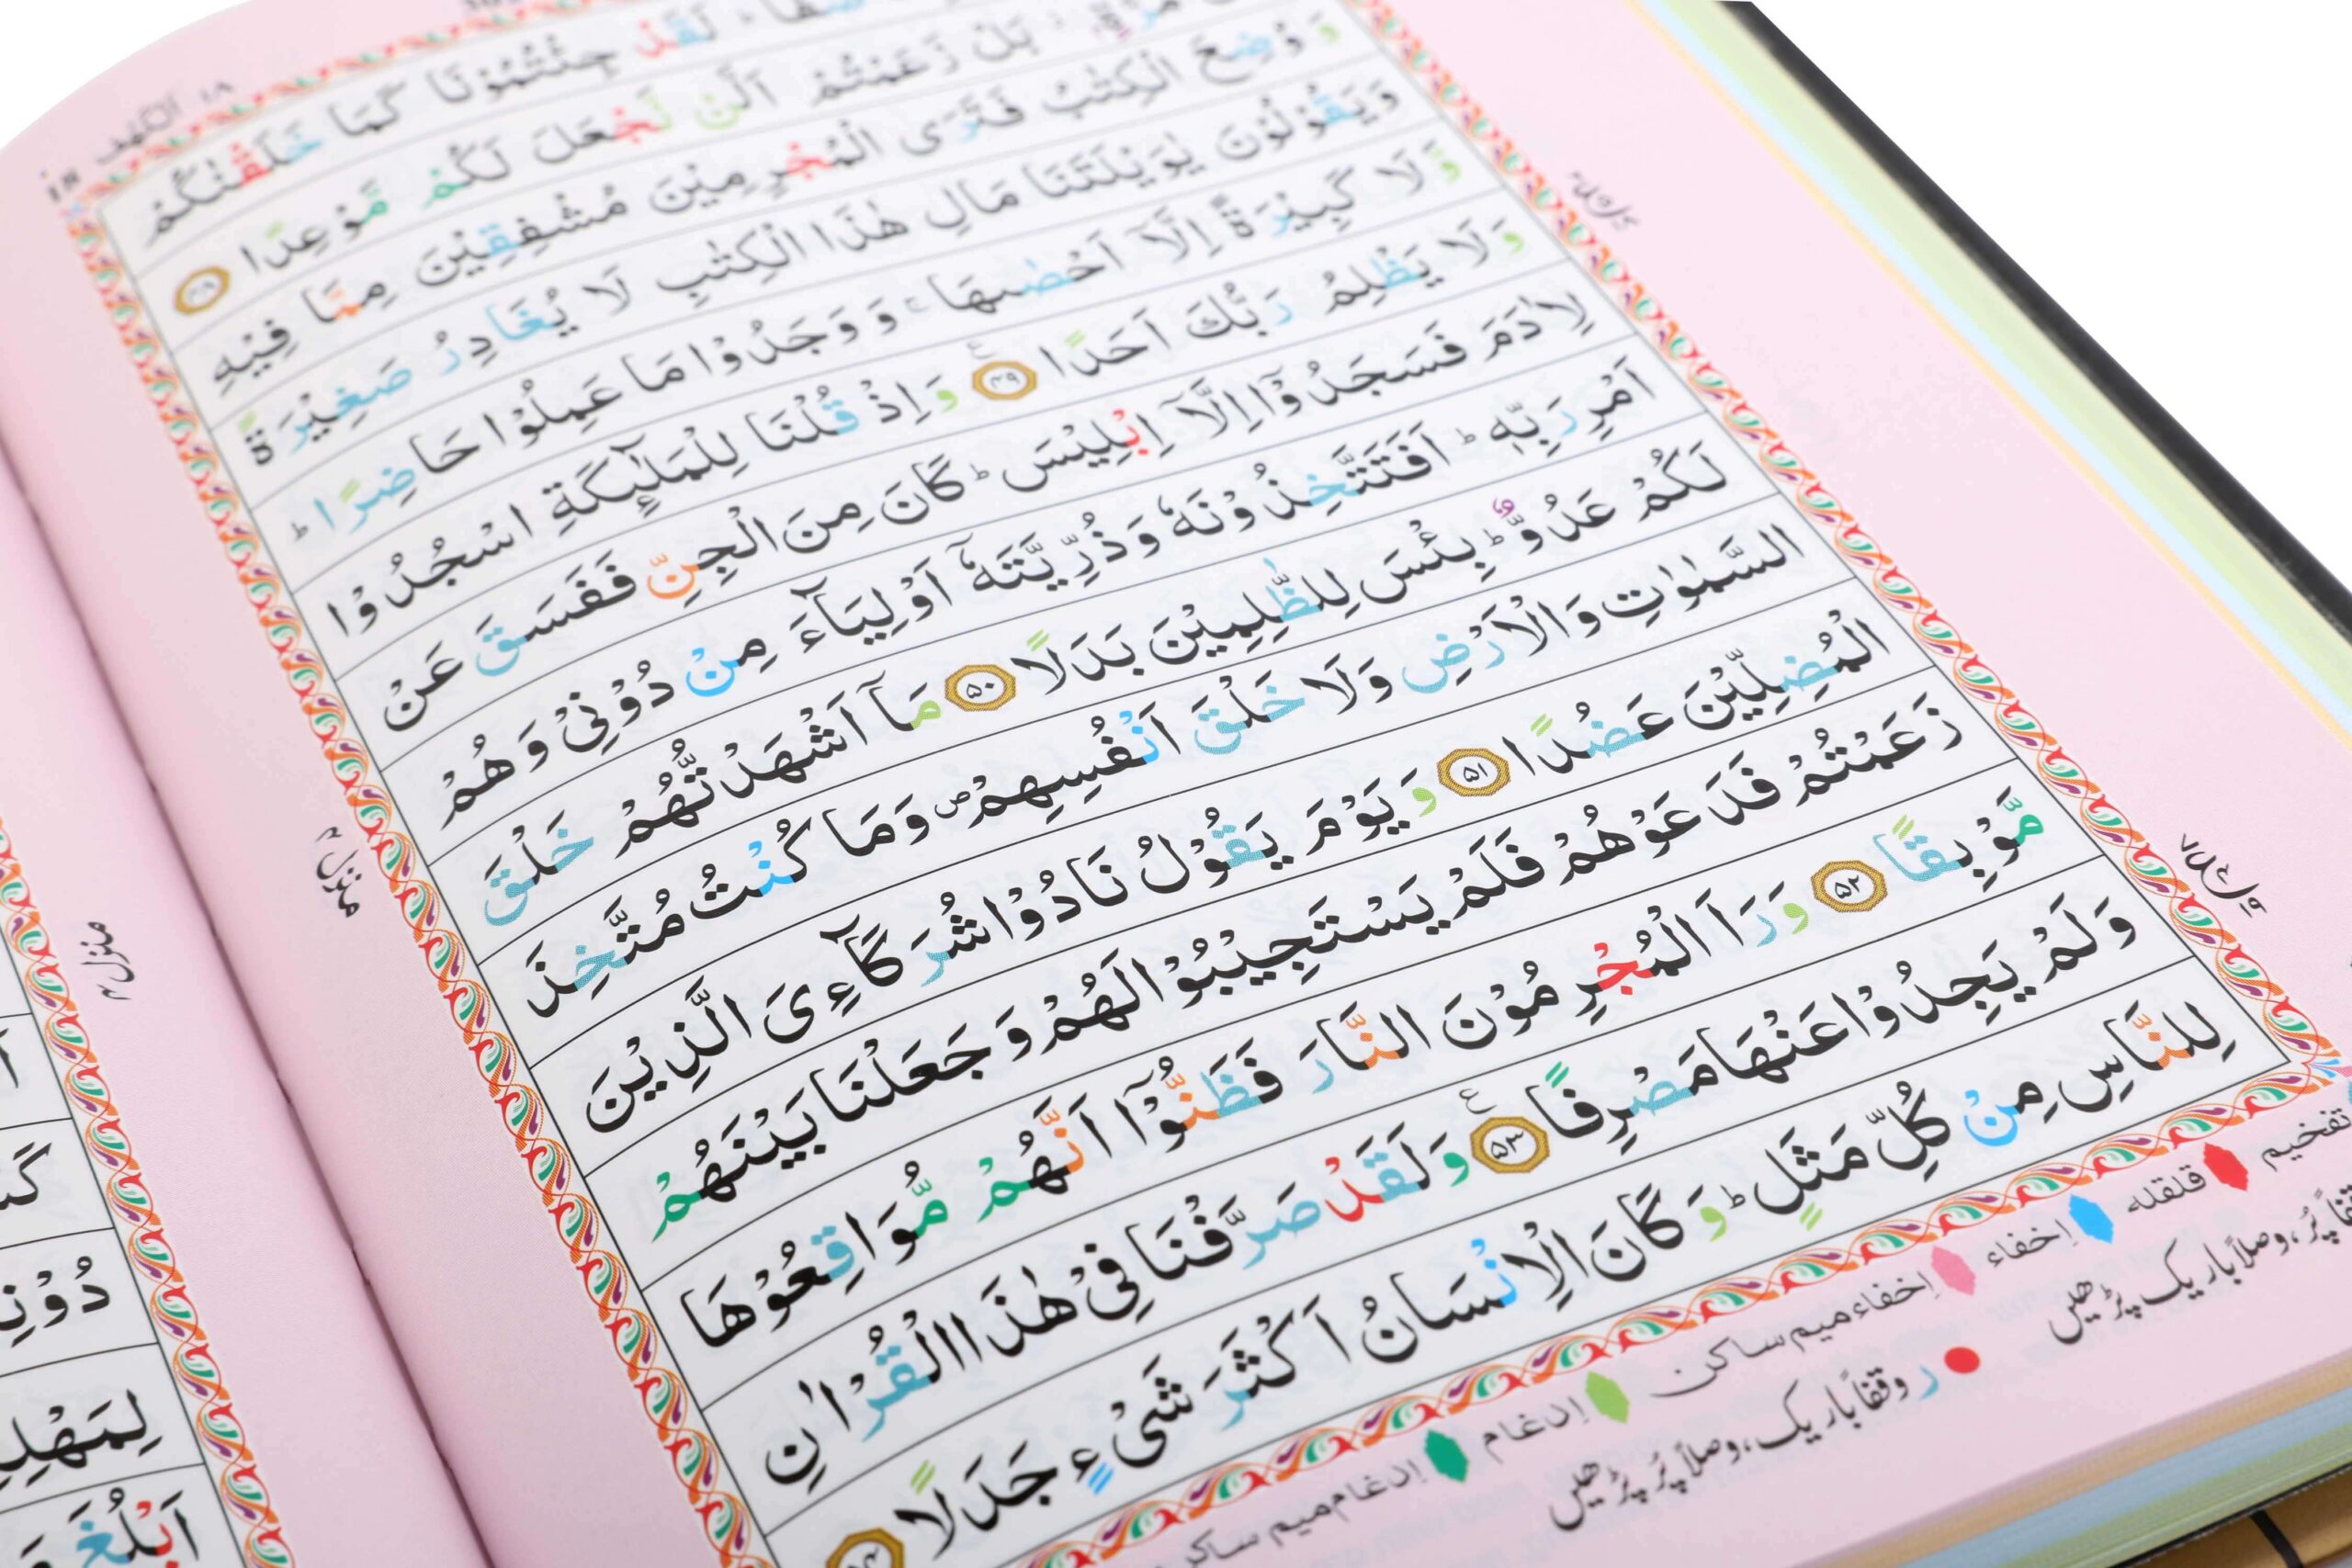 ١٨ الكهف
لَقَدْ جِئْتُمُوْنَا كَمَا خَلَقْنٰكُمْ
بَلْ زَعَمْتُمْ اَلَّنْ نَّجْعَلَ لَكُمْ مَّوْعِدًا ﴿۴۸﴾
وَوُضِعَ الْكِتٰبُ فَتَرَى الْمُجْرِمِيْنَ مُشْفِقِيْنَ مِمَّا فِيْهِ
وَيَقُوْلُوْنَ يٰوَيْلَتَنَا مَالِ هٰذَا الْكِتٰبِ لَا يُغَادِرُ صَغِيْرَةً
وَّلَا كَبِيْرَةً اِلَّآ اَحْصٰىهَا ۚ وَوَجَدُوْا مَا عَمِلُوْا حَاضِرًا ؕ
وَلَا يَظْلِمُ رَبُّكَ اَحَدًا ﴿۴۹﴾ وَاِذْ قُلْنَا لِلْمَلٰٓئِكَةِ اسْجُدُوْا
لِاٰدَمَ فَسَجَدُوْٓا اِلَّآ اِبْلِيْسَ ؕ كَانَ مِنَ الْجِنِّ فَفَسَقَ عَنْ
اَمْرِ رَبِّهٖ ؕ اَفَتَتَّخِذُوْنَهٗ وَذُرِّيَّتَهٗٓ اَوْلِيَآءَ مِنْ دُوْنِيْ وَهُمْ
لَكُمْ عَدُوٌّ ؕ بِئْسَ لِلظّٰلِمِيْنَ بَدَلًا ﴿۵۰﴾ مَآ اَشْهَدْتُّهُمْ خَلْقَ
السَّمٰوٰتِ وَالْاَرْضِ وَلَا خَلْقَ اَنْفُسِهِمْ ۪ وَمَا كُنْتُ مُتَّخِذَ
الْمُضِلِّيْنَ عَضُدًا ﴿۵۱﴾ وَيَوْمَ يَقُوْلُ نَادُوْا شُرَكَآءِيَ الَّذِيْنَ
زَعَمْتُمْ فَدَعَوْهُمْ فَلَمْ يَسْتَجِيْبُوْا لَهُمْ وَجَعَلْنَا بَيْنَهُمْ
مَّوْبِقًا ﴿۵۲﴾ وَرَاَ الْمُجْرِمُوْنَ النَّارَ فَظَنُّوْٓا اَنَّهُمْ مُّوَاقِعُوْهَا
وَلَمْ يَجِدُوْا عَنْهَا مَصْرِفًا ﴿۵۳﴾ وَلَقَدْ صَرَّفْنَا فِيْ هٰذَا الْقُرْاٰنِ
لِلنَّاسِ مِنْ كُلِّ مَثَلٍ ؕ وَكَانَ الْاِنْسَانُ اَكْثَرَ شَيْءٍ جَدَلًا
منزل ۴
تفخيم قلقله إخفاء إخفاء ميم ساكن إدغام إدغام ميم ساكن
ر وقفًا باریک، وصلاً پُر پڑھیں وقفًا پُر، وصلاً باریک پڑھیں
منزل ۴
دُوْنِ
لِمَهْلِ
اَبْلُغَ